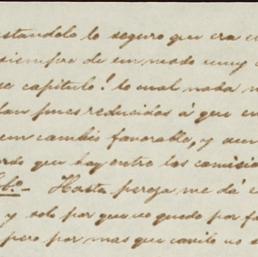 estandolo lo seguro que era
siempre de un modo muy
se capitulo! lo cual nada
dan pues reducidos á que
un cambio favorable, y
erdo que hay entre los comisio
Hasta pereza me dá
y solo por que no quedo por
pero por mas que cavilo no